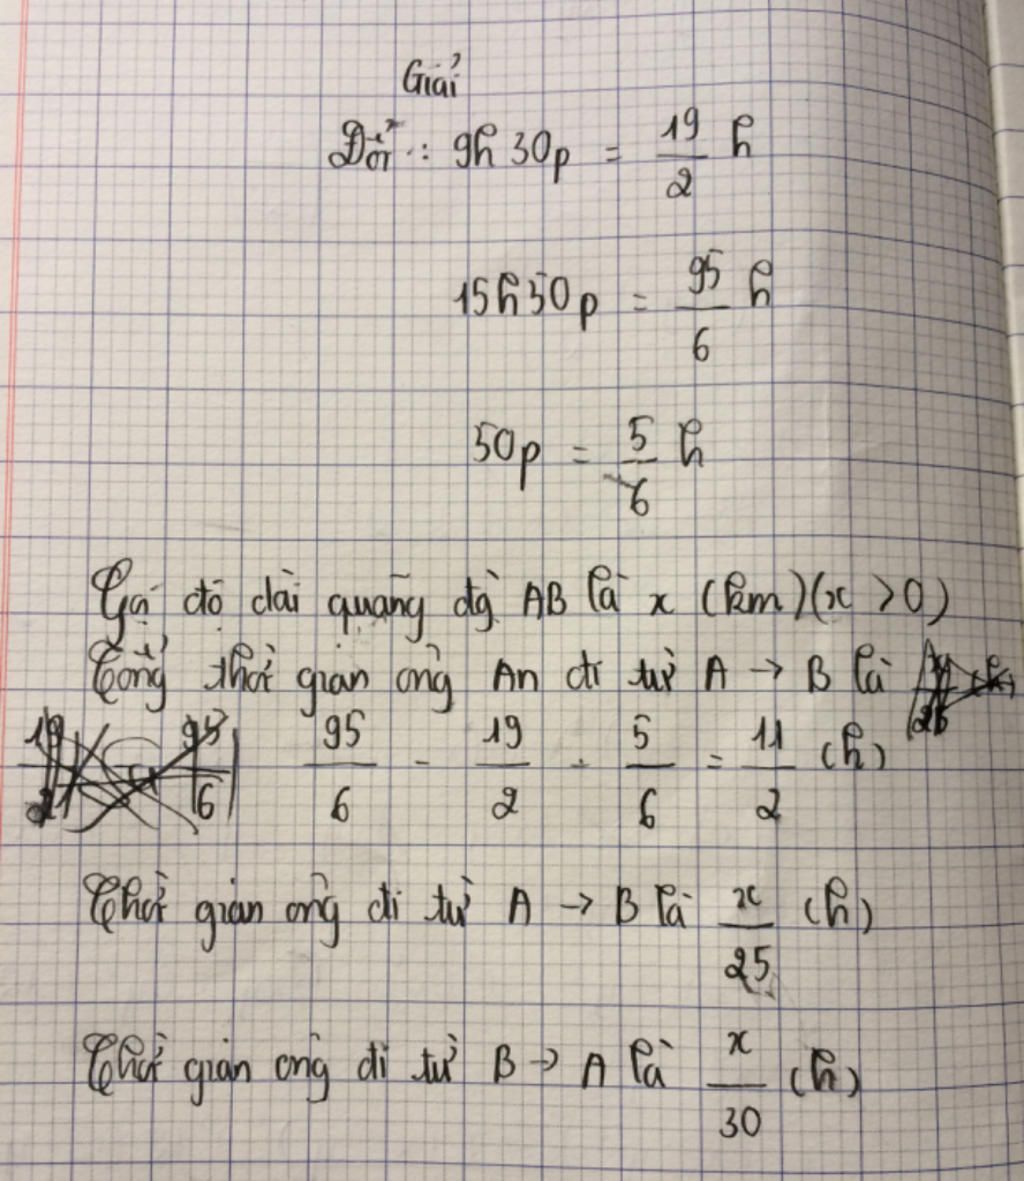 Giải
Đổi : 9h 30p = 19/2 h
15h50p = 95/6 h
50p = 5/6 h
Gọi độ dài quãng đg AB là x (km)(x > 0)
Tổng thời gian ông An đi từ A → B là
95/6 - 19/2 - 5/6 = 11/2 (h)
Thời gian ông đi từ A → B là x/25 (h)
Thời gian ông đi từ B → A là x/30 (h)